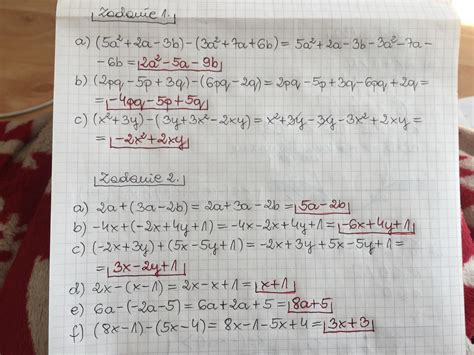 Zadanie 1.
a) (5a²+2a-3b)-(3a²+7a+6b)=5a²+2a-3b-3a²-7a-
-6b=2a²-5a-9b
b) (2pq-5p+3q)-(6pq-2q)=2pq-5p+3q-6pq+2q=
=-4pq-5p+5q
c) (x²+3y)-(3y+3x²-2xy)=x²+3y-3y-3x²+2xy=
=-2x²+2xy
Zadanie 2.
a) 2a+(3a-2b)=2a+3a-2b=5a-2b
b) -4x+(-2x+4y+1)=-4x-2x+4y+1=-6x+4y+1
c) (-2x+3y)+(5x-5y+1)=-2x+3y+5x-5y+1=
=3x-2y+1
d) 2x-(x-1)=2x-x+1=x+1
e) 6a-(-2a-5)=6a+2a+5=8a+5
f) (8x-1)-(5x-4)=8x-1-5x+4=3x+3